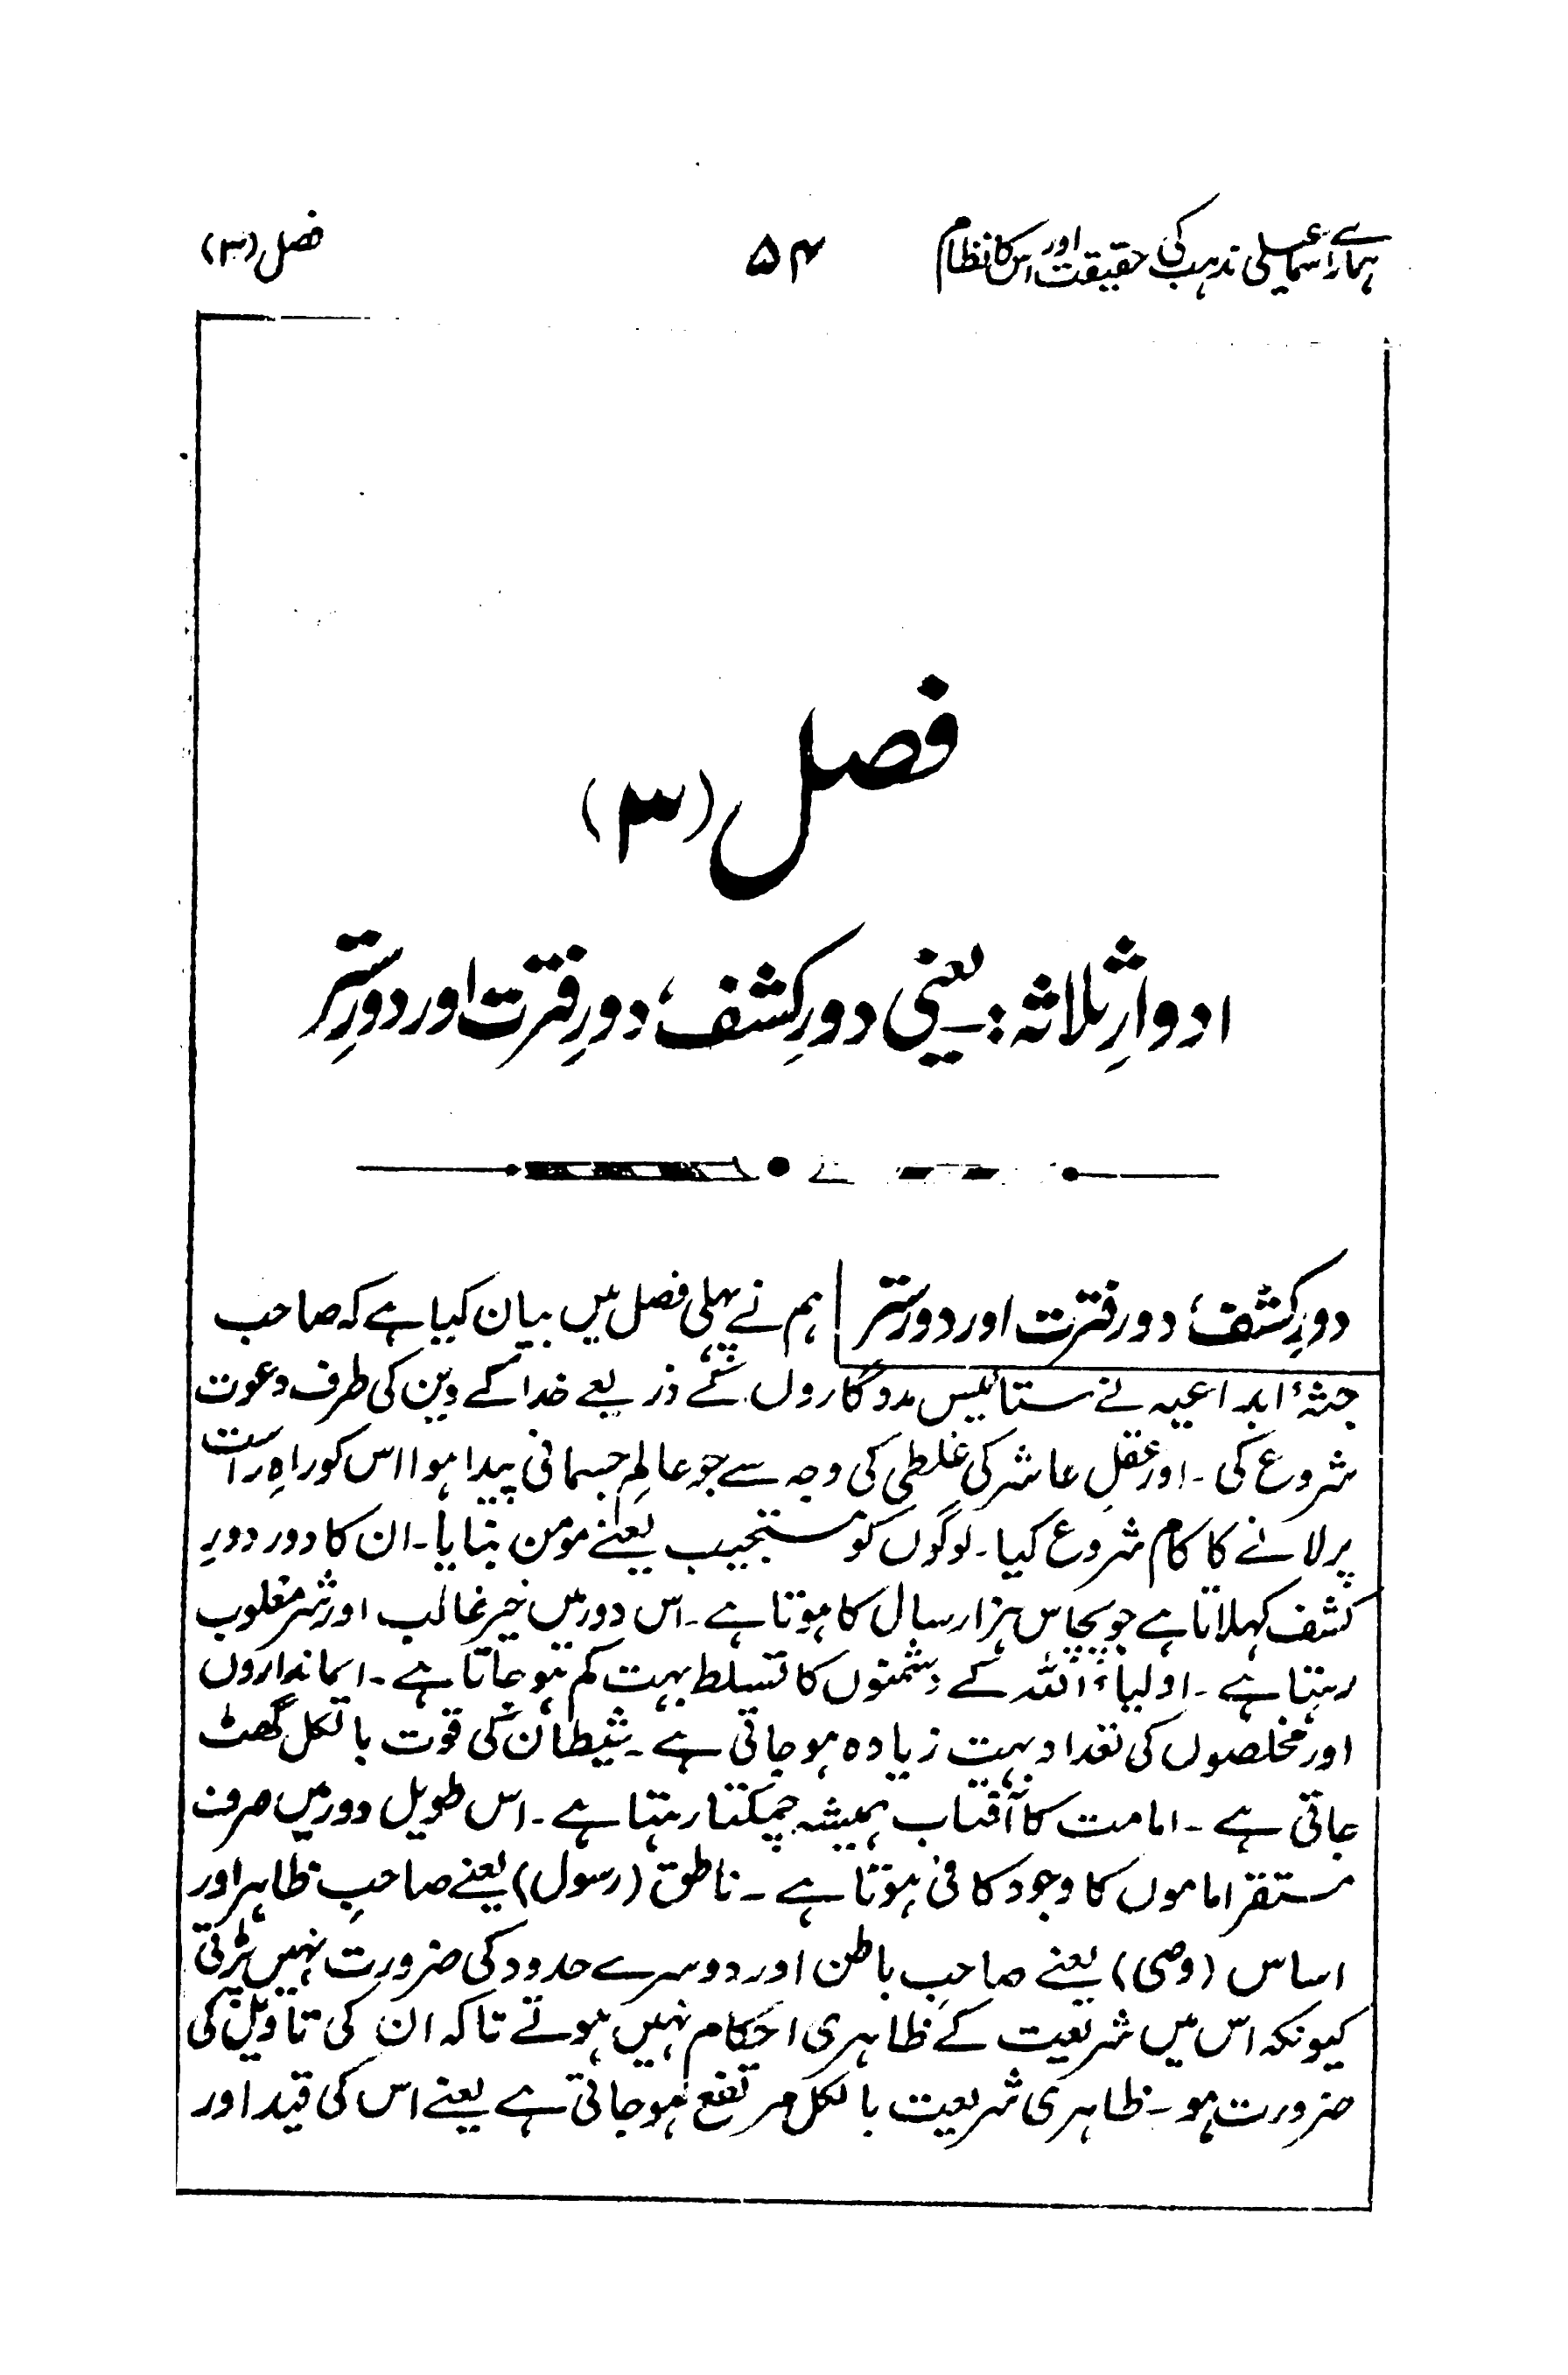 ہمارے اسماعیلی مذہب کی حقیقت اور اس کا نظام ۵۴ فصل (۳)
فصل (۳)
ادوارِ ثلاثہ :۔ یعنی دورِ کشف، دورِ فترت اور دورِ ستر
دورِ کشف، دور فترت اور دور ستر ہم نے پہلی فصل میں بیان کیا ہے کہ صاحب
جثۂ ابداعیہ نے ستائیس مددگاروں کے ذریعے خدا کے دین کی طرف دعوت
شروع کی ۔ اور عقلِ عاشر کی غلطی کی وجہ سے جو عالمِ جسمانی پیدا ہوا اس کو راہِ راست
پر لانے کا کام شروع کیا ۔ لوگوں کو مستجیب یعنے مومن بنایا ۔ ان کا دور دورِ
کشف کہلاتا ہے جو پچاس ہزار سال کا ہوتا ہے ۔ اس دور میں خیر غالب اور شر مغلوب
رہتا ہے ۔ اولیاء اللہ کے دشمنوں کا تسلط بہت کم ہو جاتا ہے ۔ ایمانداروں
اور مخلصوں کی تعداد بہت زیادہ ہو جاتی ہے ۔ شیطان کی قوت بالکل گھٹ
جاتی ہے ۔ امامت کا آفتاب ہمیشہ چمکتا رہتا ہے ۔ اس طویل دور میں صرف
مستقر اماموں کا وجود کافی ہوتا ہے ۔ ناطق (رسول) یعنے صاحبِ ظاہر اور
اساس (وصی) یعنے صاحبِ باطن اور دوسرے حدود کی ضرورت نہیں پڑتی
کیونکہ اس میں شریعت کے ظاہری احکام نہیں ہوتے تاکہ ان کی تاویل کی
ضرورت ہو ۔ ظاہری شریعت بالکل مرتفع ہو جاتی ہے یعنے اس کی قید اور